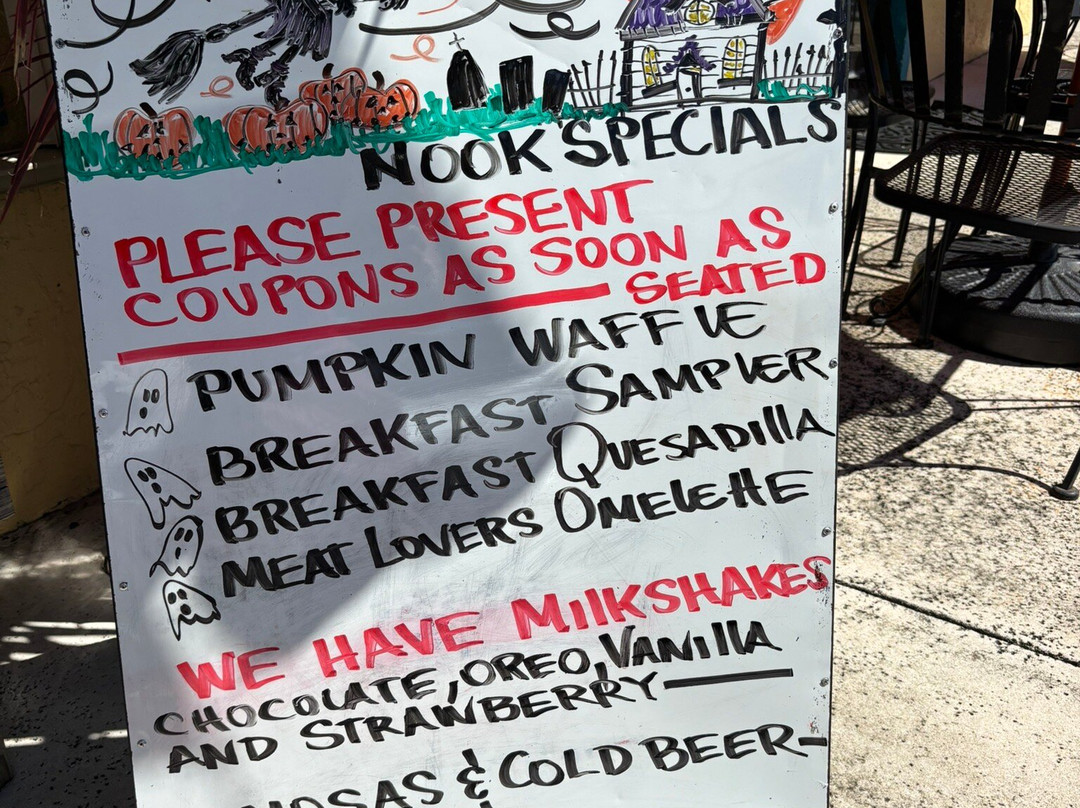 NOOK SPECIALS
PLEASE PRESENT
COUPONS AS SOON AS
SEATED
PUMPKIN WAFFLE
BREAKFAST SAMPLER
BREAKFAST QUESADILLA
MEAT LOVERS OMELETTE
WE HAVE MILKSHAKES
CHOCOLATE, OREO, VANILLA
AND STRAWBERRY
& COLD BEER